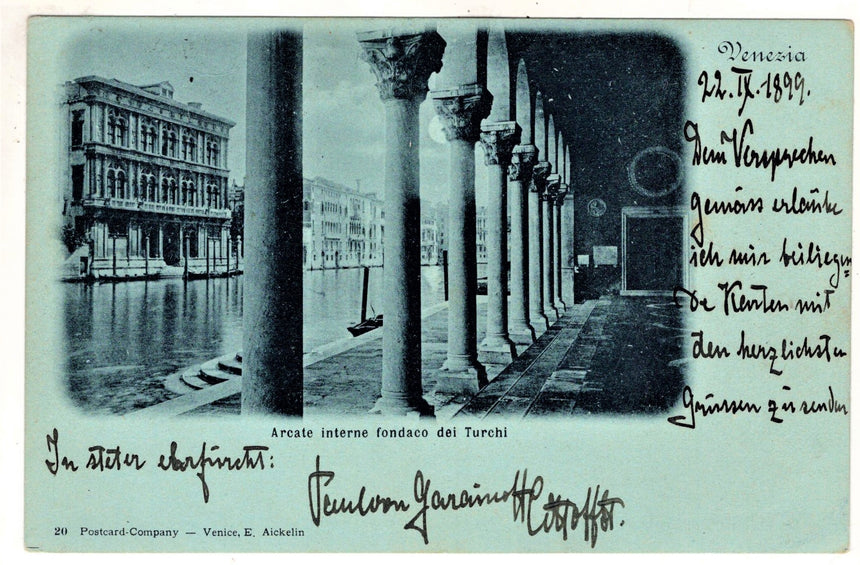 Venezia
22.IX.1899.
Dem Versprechen
gemäss erlaube
ich mir beiliegen=
de Karten mit
den herzlichsten
Grüssen zu senden
Arcate interne fondaco dei Turchi
In steter Ehrfurcht:
20 Postcard-Company — Venice, E. Aickelin